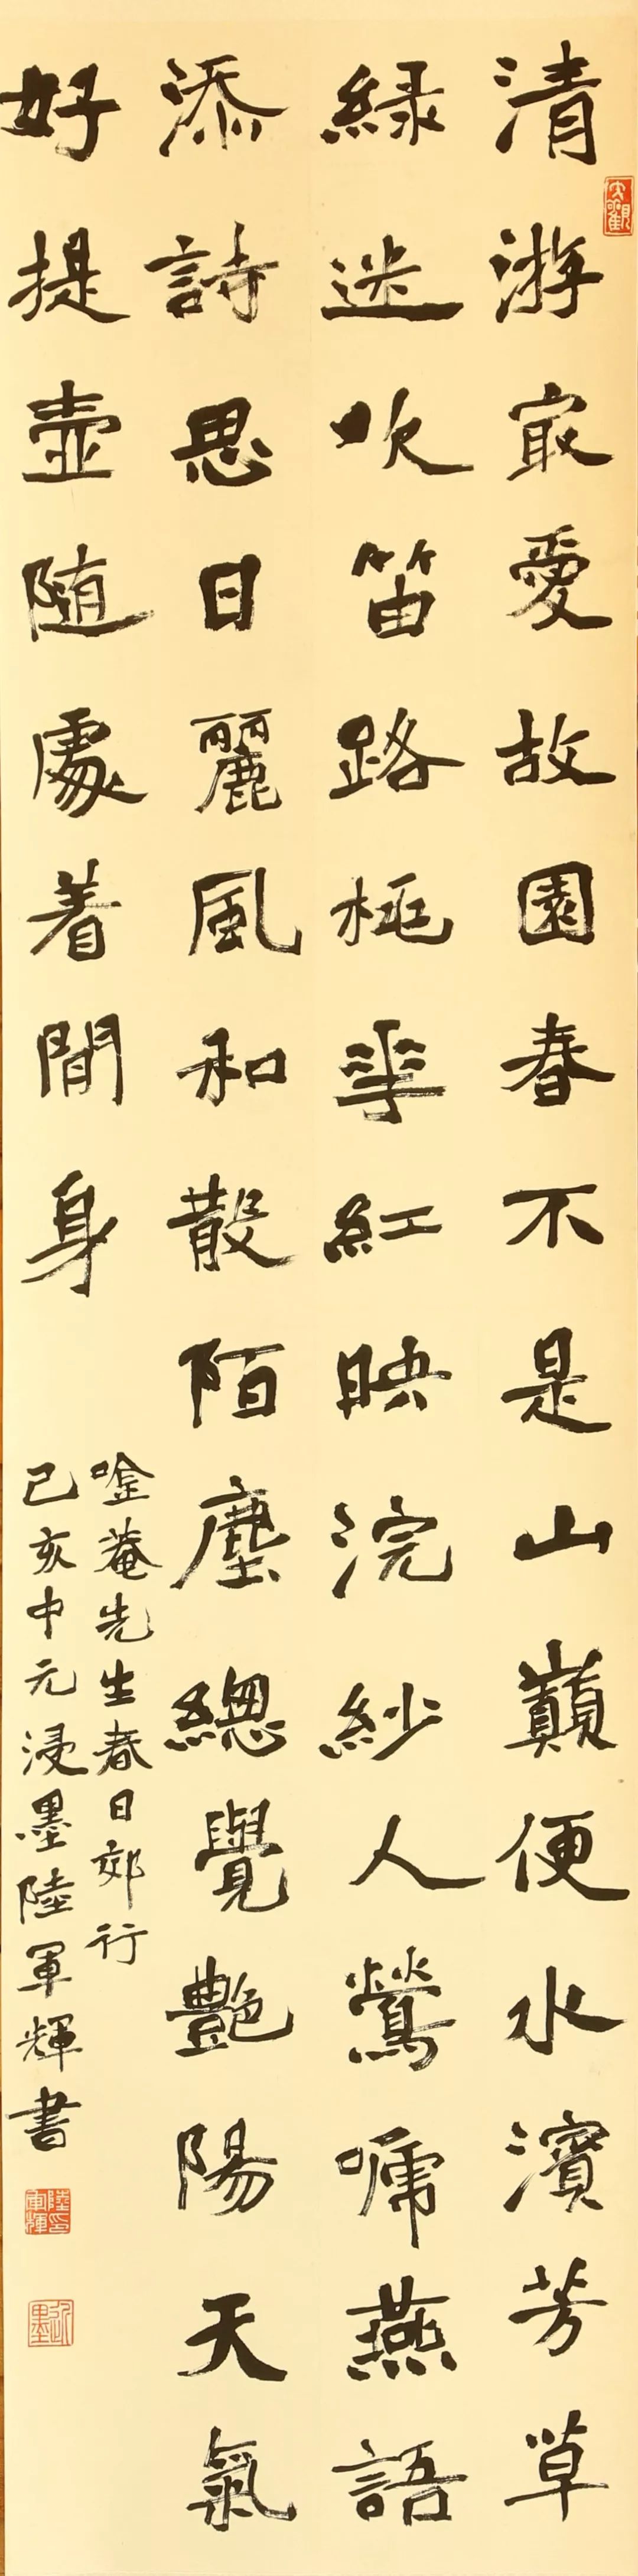 清游冣愛故園春不是山巔便水濱芳草
綠迷吹笛路桃華紅映浣紗人鶯嗁燕語
添詩思日麗風和散陌塵總覺艷陽天氣
好提壺随處着閒身
唫菴先生春日郊行
己亥中元浸墨陸軍輝書
陸軍輝印